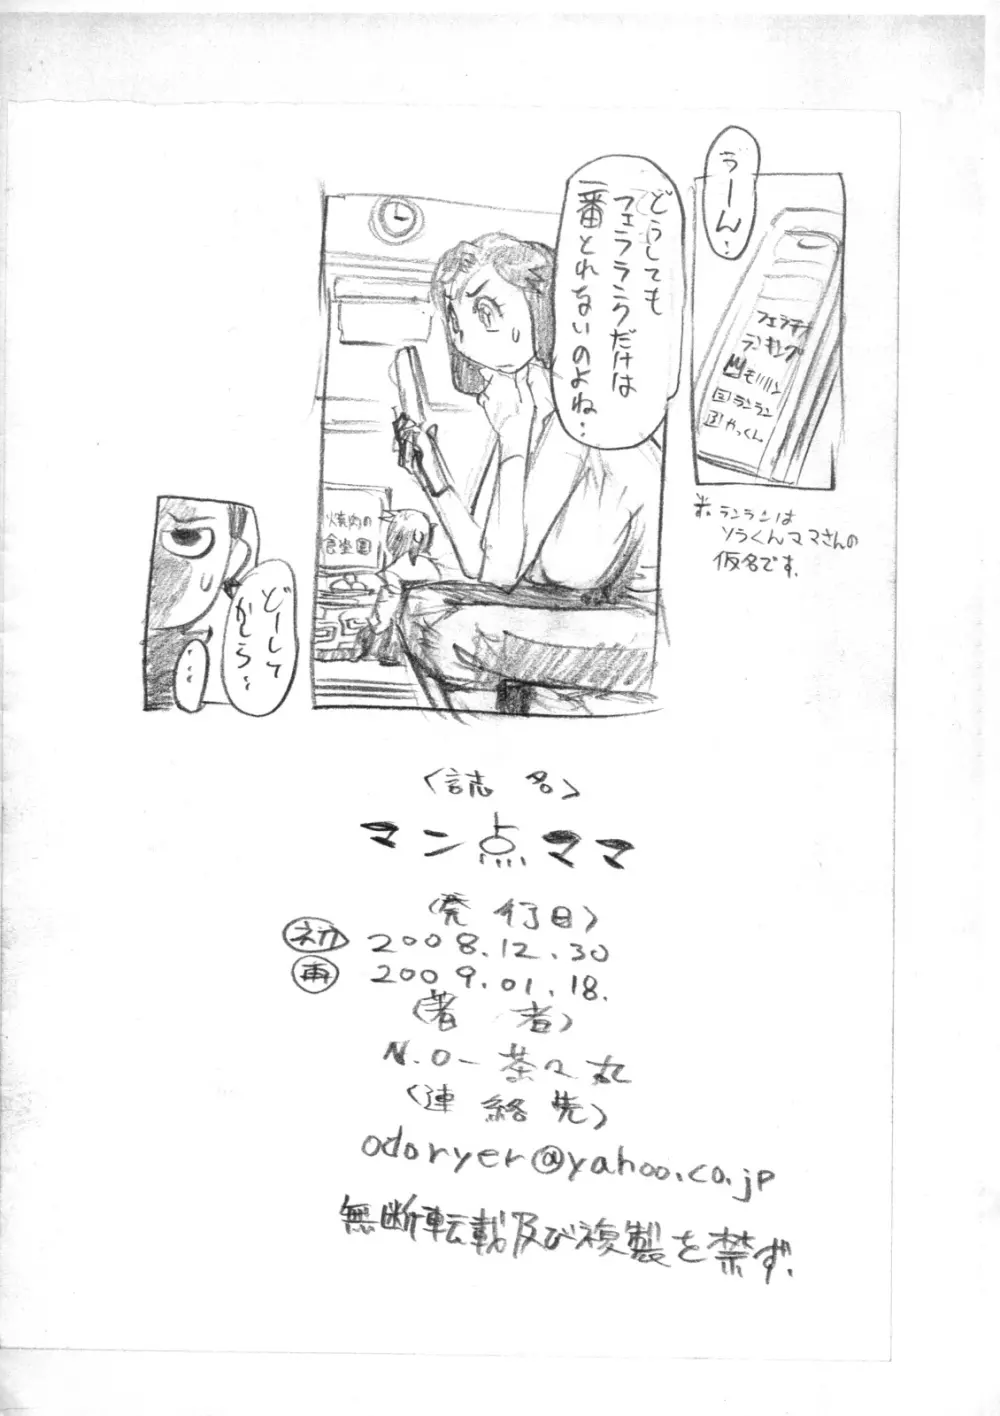 うーん…
フェラチオ
ランキング
モリリン
2 ランラン
3 やっくん
※ランランは
ソラくんママさんの
仮名です.
どうしても
フェラランクだけは
一番とれないのよね…
焼肉の
食堂園
どーして
かしら…
…
〈誌名〉
マン点ママ
〈発行日〉
初 2008.12.30
再 2009.01.18.
〈著者〉
N.O-茶々丸
〈連絡先〉
odoryer@yahoo.co.jp
無断転載及び複製を禁ず.